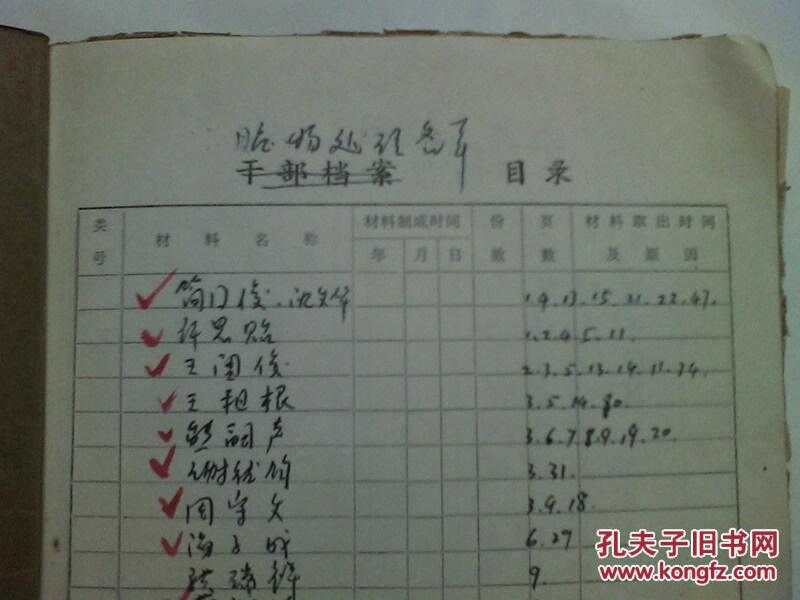 赃物处理
干部档案 目录
类号 材料名称 材料制成时间 份数 页数 材料取出时间及原因
年 月 日
简 俊、沈文华 1.9.13.15.21.22.47.
许思贻 1.2.4.5.11.
王国俊 2.3.5.13.14.11.34.
王 根 3.5.14.80.
熊嗣声 3.6.7.8.9.19.20.
谢 钧 3.31.
周字文 3.9.18.
6.27
9.
孔夫子旧书网
www.kongfz.com